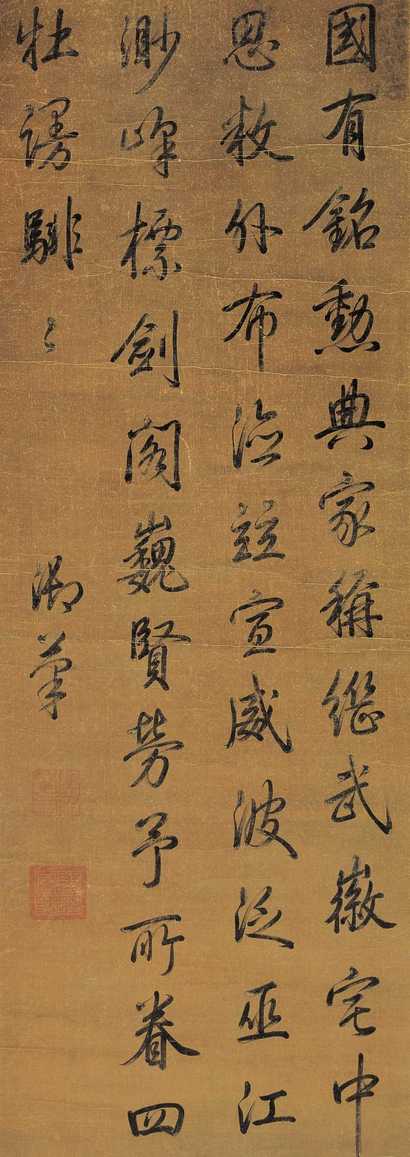 國有銘勳典家稱繼武徽宅中
恩敷外布德竝宣威波泛巫江
渺峰標劍閣巍賢勞予所眷四
牡謾騑〻
御筆